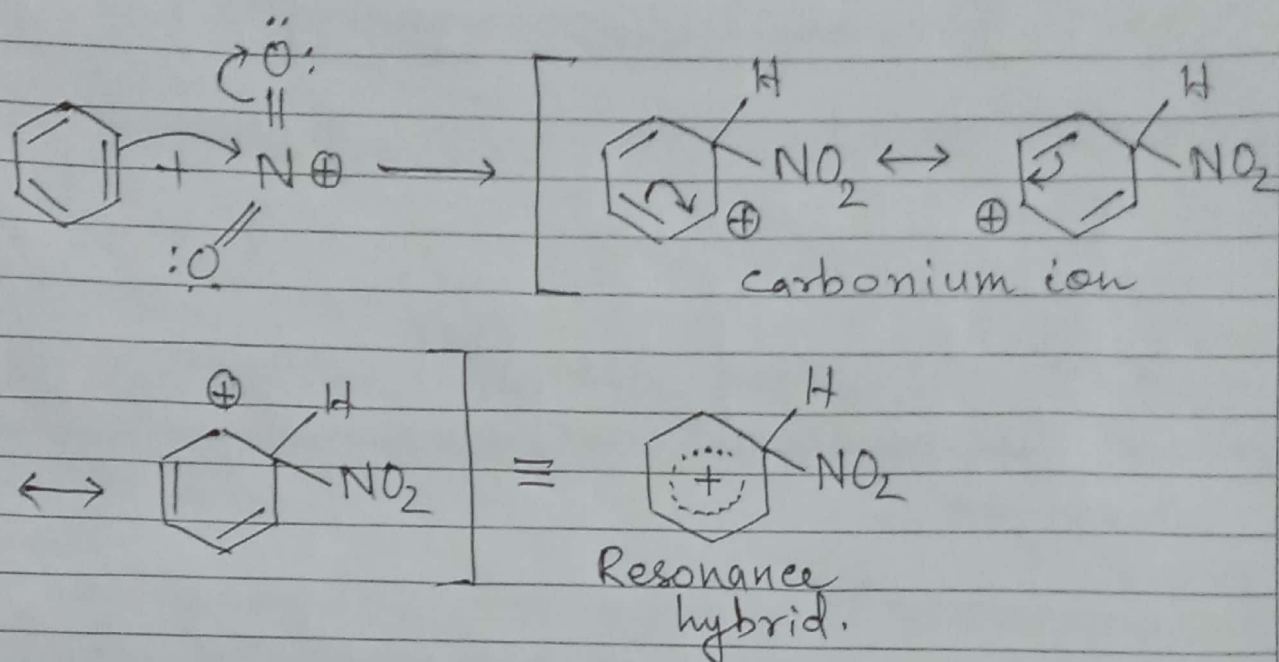 :Ö:
H H
+ N⊕ ⟶ NO₂ ⟷ NO₂
⊕ ⊕
:O
carbonium ion
⊕ H H
⟷ NO₂ ≡ + NO₂
Resonance
hybrid.